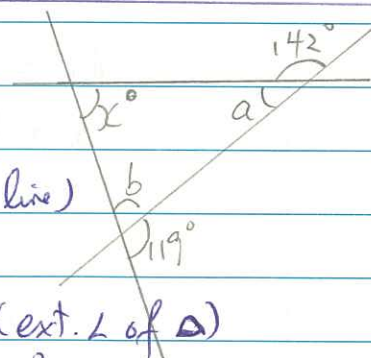 142°
x°
a
b
line)
119°
(ext. ∠ of △)